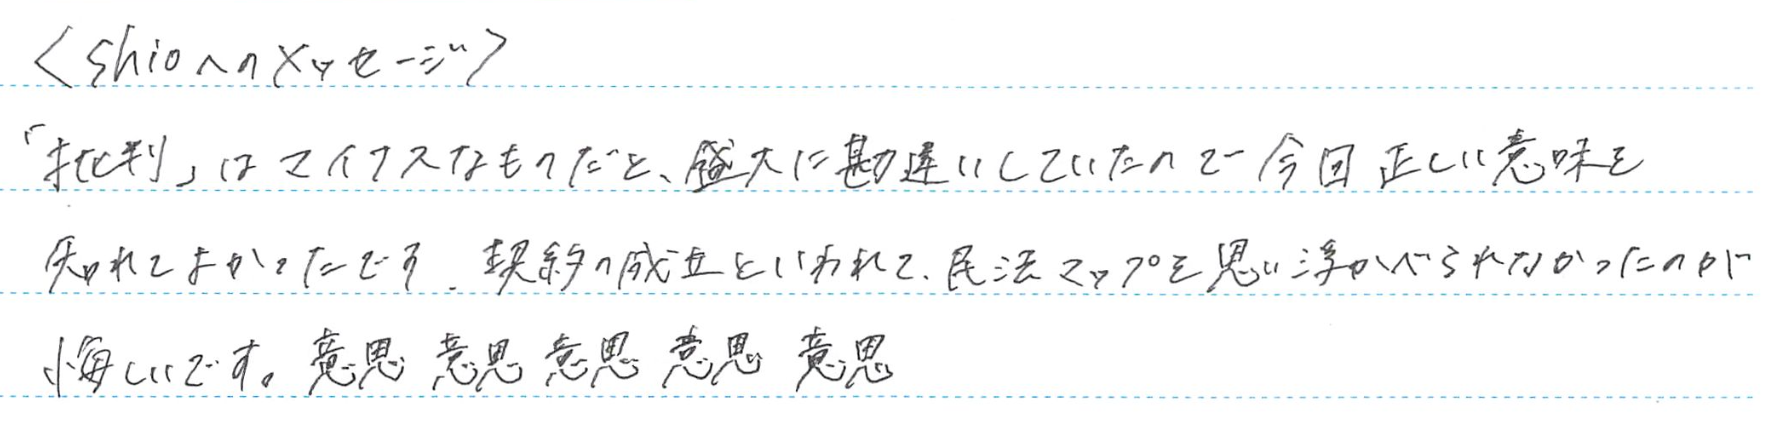 ＜shioへのメッセージ＞
「批判」はマイナスなものだと、盛大に勘違いしていたので今回正しい意味を
知れてよかったです. 契約の成立といわれて、民法マップを思い浮かべられなかったのが
悔しいです。意思 意思 意思 意思 意思